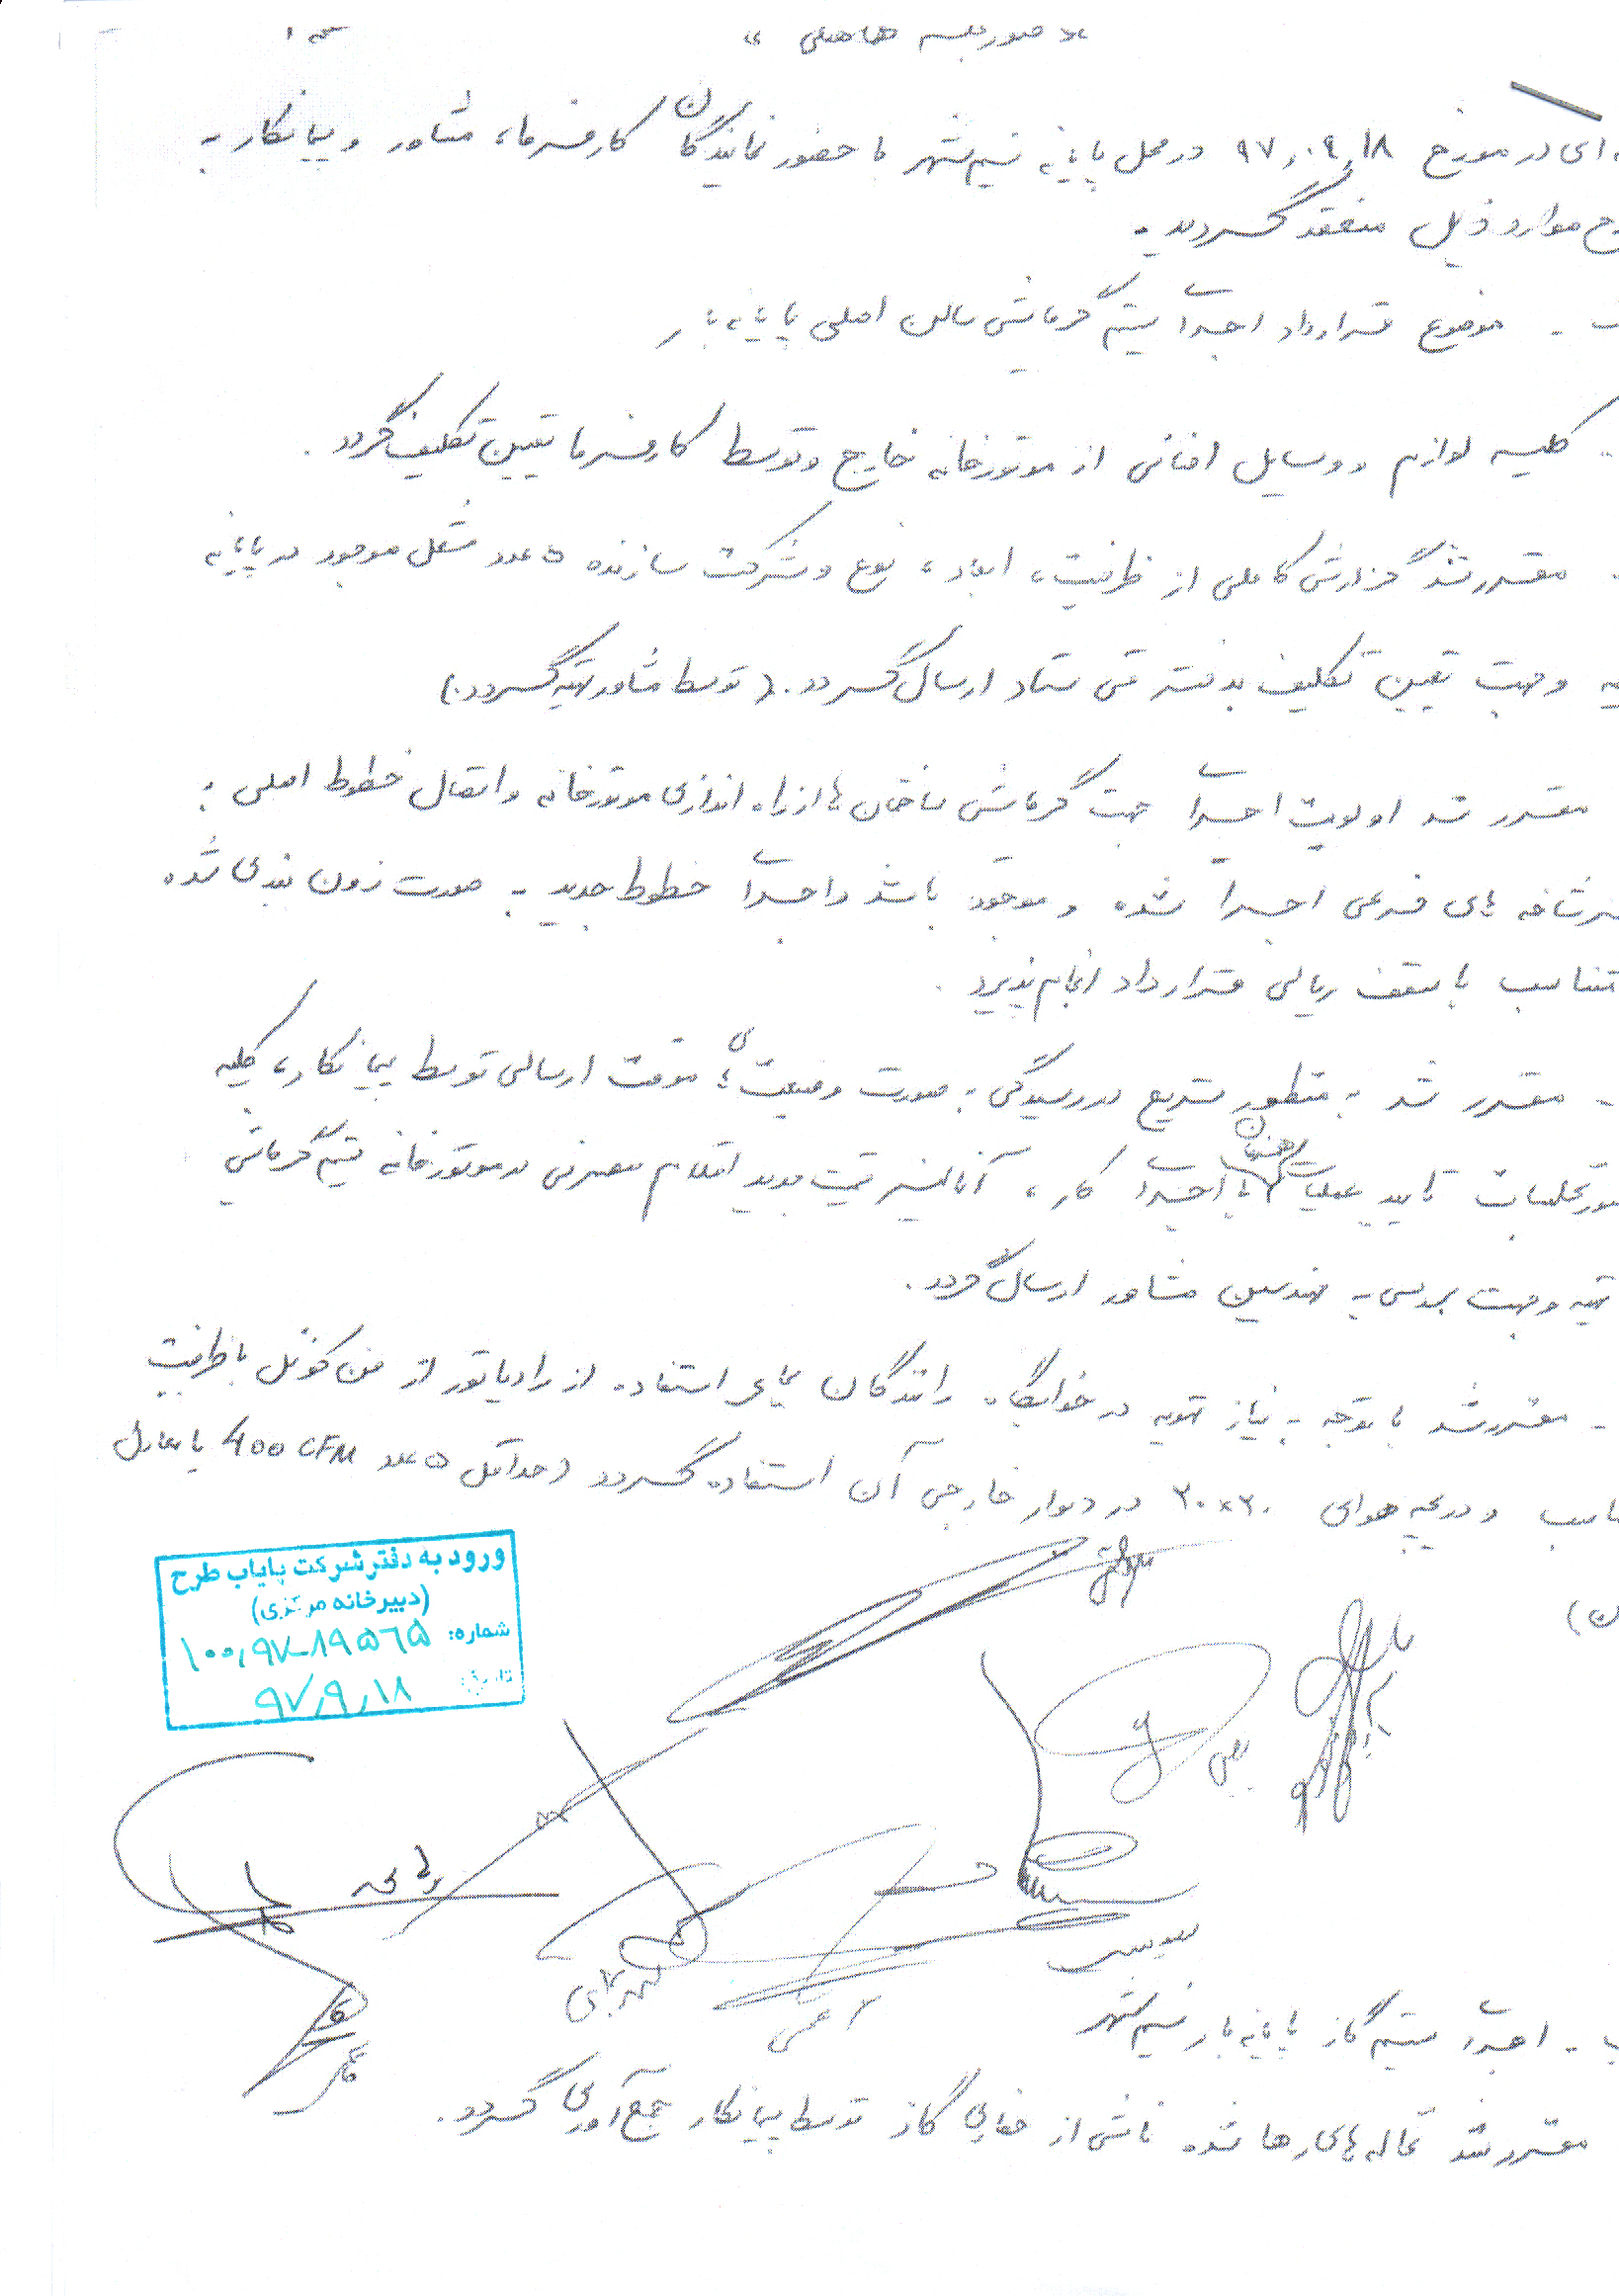 « صورتجلسه هماهنگی »
صفحه ۱
ه ای در مورخ ۹۷,۰۹,۱۸ در محل پایانه نسیم شهر با حضور نمایندگان کارفرما، مشاور و پیمانکار به
ح موارد ذیل منعقد گردید -
- موضوع قرارداد اجرای سیستم گرمایش سالن اصلی پایانه بار
- کلیه لوازم و وسایل اضافی از موتورخانه خارج و توسط کارفرما تعیین تکلیف گردد.
- مقرر شد گزارش کاملی از ظرفیت، ابعاد، نوع و شرکت سازنده ۵ عدد مشعل موجود در پایانه
یه و جهت تعیین تکلیف به دفتر فنی ستاد ارسال گردد. (توسط مشاور تهیه گردد.)
مقرر شد اولویت اجرای جهت گرمایش ساختمان ها از راه اندازی موتورخانه و اتصال خطوط اصلی به
سرشاخه های فرعی اجرا شده و موجود باشد و اجرای خطوط جدید به صورت زون بندی شده
متناسب با سقف ریالی قرارداد انجام پذیرد.
- مقرر شد به منظور تسریع در رسیدگی به صورت وضعیت های موقت ارسالی توسط پیمانکار، کلیه
صورتجلسات تایید عملیات با اجرای کار، آنالیز قیمت جدید اقلام مصرفی در موتورخانه سیستم گرمایشی
تهیه و جهت بررسی به مهندسین مشاور ارسال گردد.
- مقرر شد با توجه به نیاز تهویه در خوابگاه رانندگان بجای استفاده از رادیاتور از فن کوئل با ظرفیت
مناسب و دریچه هوای ۳۰×۳۰ در دیوار خارجی آن استفاده گردد (حداقل ۵ عدد 400 CFM یا معادل
ن)
ورود به دفتر شرکت پایاب طرح
(دبیرخانه مرکزی)
شماره: ۱۰۰,۹۷-۱۹۵۶۵
تاریخ: ۹۷,۹,۱۸
ب - اجرای سیستم گاز پایانه بار نسیم شهر
مقرر شد نخاله های رها شده ناشی از حفاری گاز توسط پیمانکار جمع آوری گردد.